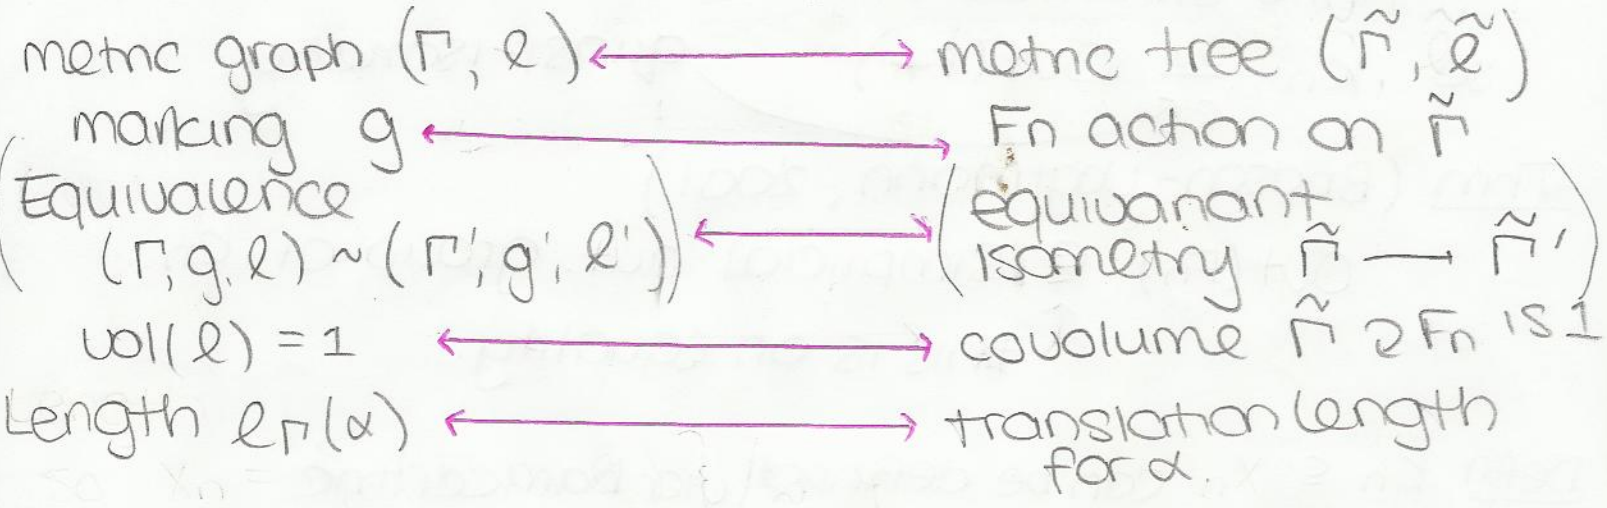 metric graph (Γ, ℓ) ↔ metric tree (Γ̃, ℓ̃)
marking g ↔ Fn action on Γ̃
(Equivalence (Γ, g, ℓ) ~ (Γ', g', ℓ')) ↔ (equivariant isometry Γ̃ — Γ̃')
vol(ℓ) = 1 ↔ covolume Γ̃ ⊋ Fn is 1
Length ℓΓ(α) ↔ translation length for α.